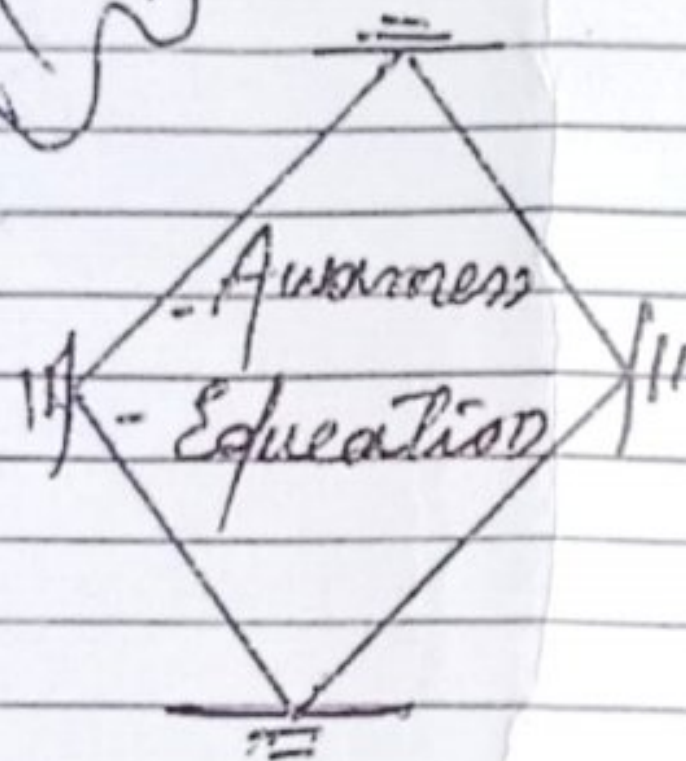 - Awarness
- Education